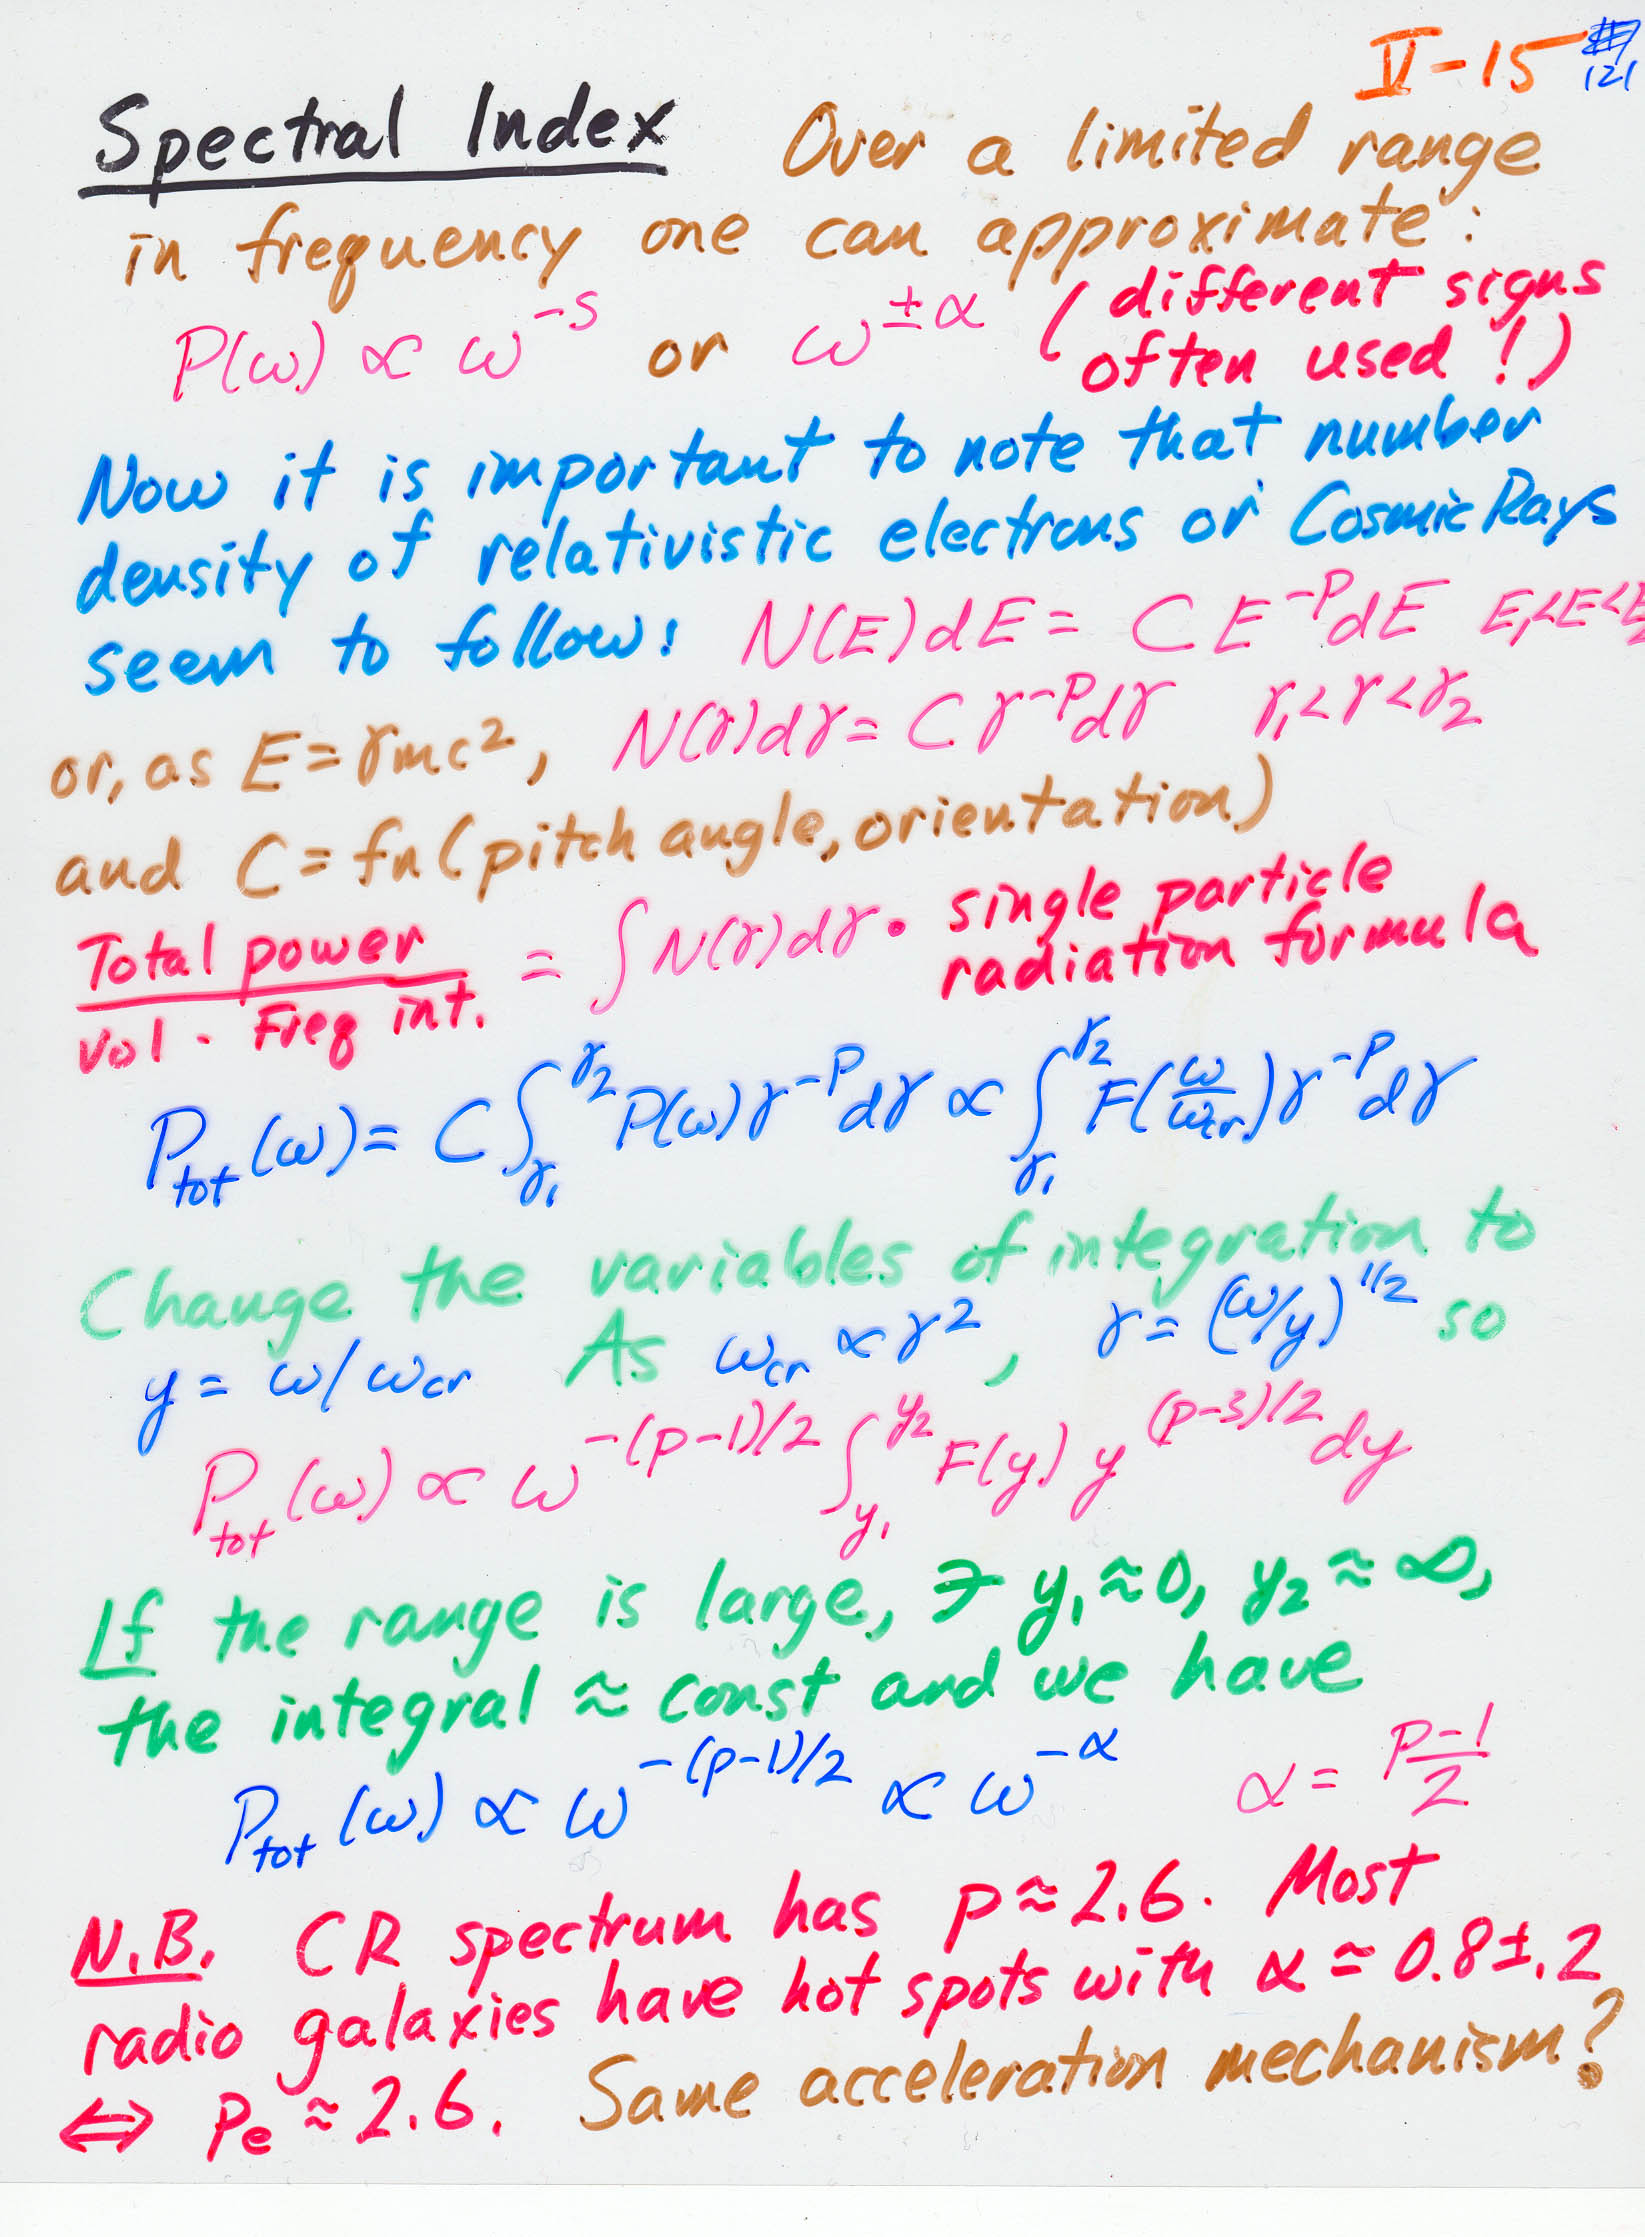 V-15 121
Spectral Index Over a limited range
in frequency one can approximate:
P(ω) ∝ ω^{-s} or ω^{±α} (different signs
often used!)
Now it is important to note that number
density of relativistic electrons or Cosmic Rays
seem to follow: N(E)dE = C E^{-p}dE E₁<E<E₂
or, as E=γmc², N(γ)dγ = C γ^{-p}dγ γ₁<γ<γ₂
and C = fn(pitch angle, orientation)
Total power / Vol. Freq int. = ∫N(γ)dγ • single particle
radiation formula
P_tot(ω) = C∫_{γ₁}^{γ₂} P(ω)γ^{-p}dγ ∝ ∫_{γ₁}^{γ₂} F(ω/ω_cr)γ^{-p}dγ
Change the variables of integration to
y = ω/ω_cr As ω_cr ∝ γ², γ = (ω/y)^{1/2} so
P_tot(ω) ∝ ω^{-(p-1)/2} ∫_{y₁}^{y₂} F(y) y^{(p-3)/2} dy
If the range is large, ∋ y₁≈0, y₂≈∞,
the integral ≈ const and we have
P_tot(ω) ∝ ω^{-(p-1)/2} ∝ ω^{-α} α = (p-1)/2
N.B. CR spectrum has p≈2.6. Most
radio galaxies have hot spots with α ≈ 0.8±.2
⇔ p_e ≈ 2.6. Same acceleration mechanism?